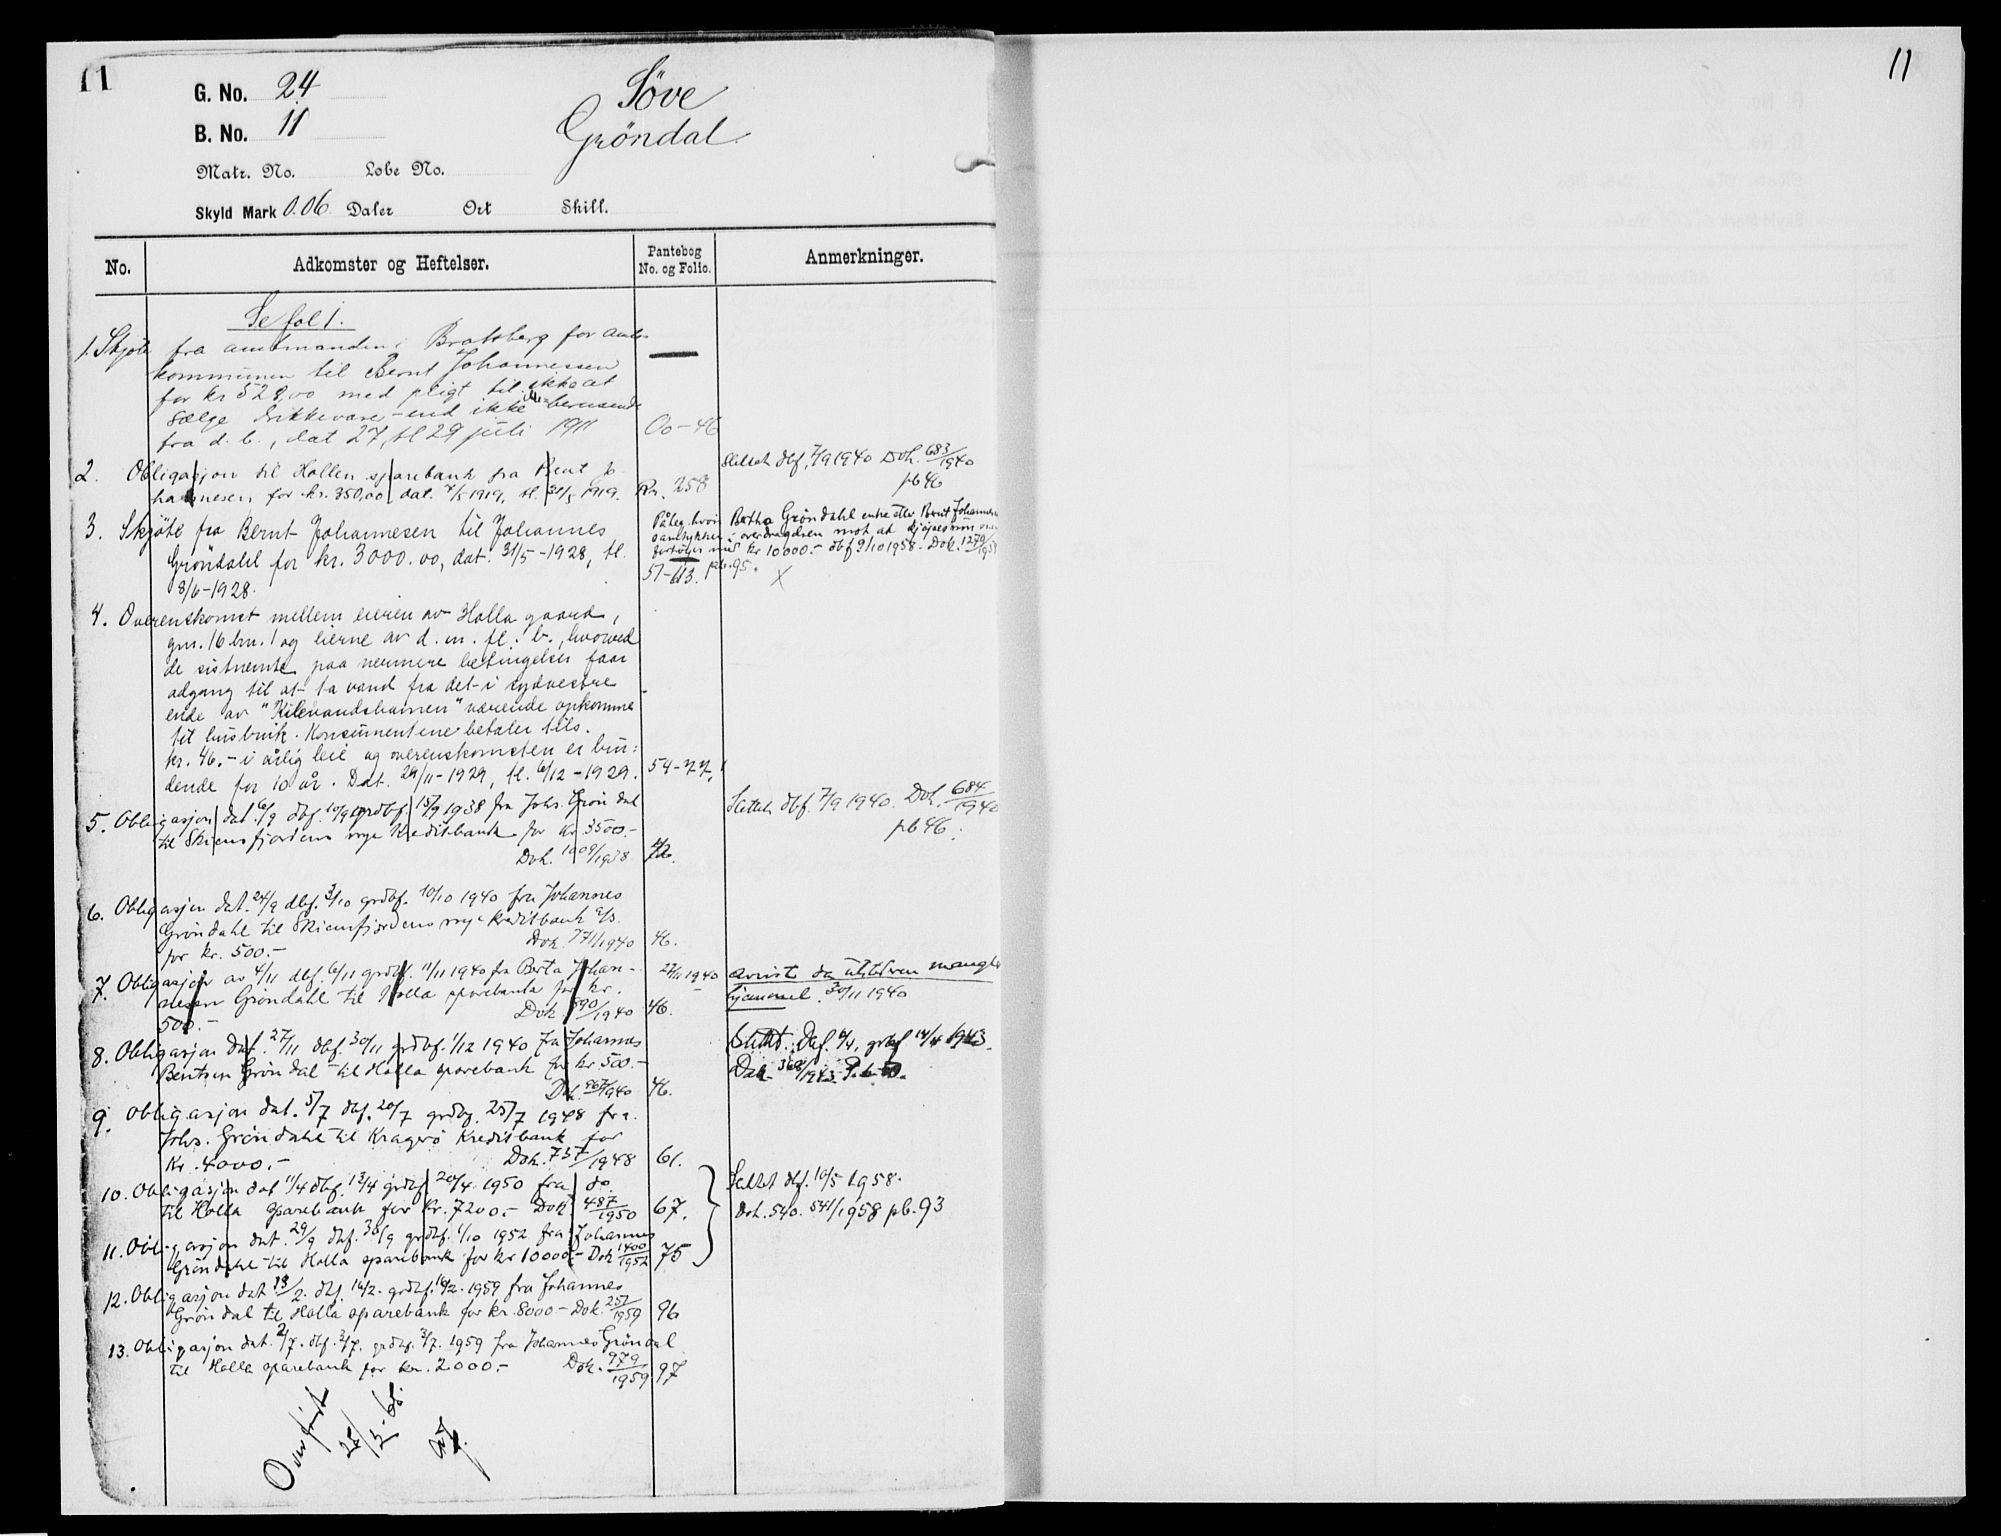 11
G. No. 24
Söve
B. No. 11
Gröndal.
Matr. No. Løbe No.
Skyld Mark 0.06 Daler Ort Skill.
No. Adkomster og Heftelser. Pantebog No. og Folio. Anmerkninger.
Se fol 1.
1. Skjøte fra amtmanden i Bratsberg for amts
kommunen til Bernt Johannessen
for kr 528,00 med pligt til ikke at
sælge drikkevare - end ikke berusende
fra d. b., dat 27, tl 29 juli 1911 Oo-46
2. Obligasjon til Hollen sparebank fra Bernt Jo
hannesen for kr. 350,00 dat. 7/5 1919, tl. 31/5 1919. Rr. 258
Slettet dbf. 7/9 1940 Dok. 683/1940
pb 46
3. Skjøte fra Bernt Johannesen til Johannes
Gröndahl for kr. 3000.00, dat. 31/5-1928, tl.
8/6-1928. 57-613.
Påteg. hvori Bertha Gröndahl enke etter Bernt Johannesen
samtykker i overdragelsen mot at
kr 10000.- dbf 9/10 1958. Dok. 1279/1958
pb. 95.
X
4. Overenskomst mellem eieren av Holla gaard,
gnr. 16 bnr. 1 og eierne av d. m. fl. b., hvorved
de sistnemte paa nermere betingelser faar
adgang til at ta vand fra det i sydvestre
ende av "Kilevandshamen" værende opkomme
til husbruk. Konsumentene betaler tils.
kr. 46.- i årlig leie og overenskomsten er bin:
dende for 10 år. Dat. 29/11-1929, tl. 6/12-1929. 54-77.
5. Obligasjon dat. 6/9 dbf. 10/9 grdbf. 15/9 1938 fra Johs. Gröndal
til Skiensfjordens nye Kreditbank for kr 3500.-
Dok. 1009/1938 42.
Slettet dbf. 7/9 1940. Dok. 684/1940
pb 46.
6. Obligasjon dat. 24/9 dbf. 3/10 grdbf. 10/10 1940 fra Johannes
Gröndahl til Skiensfjordens nye kreditbank a/s.
for kr. 500.- Dok. 771/1940 46.
7. Obligasjon av 4/11 dbf. 6/11 grdbf. 11/11 1940 fra Berta Johan-
nesen Gröndahl til Holla sparebank for kr.
500.- Dok. 890/1940 46.
27/11 1940 avvist da utstederen mangler
hjemmel. 30/11 1940
8. Obligasjon dat. 27/11 dbf. 30/11 grdbf. 1/12 1940 fra Johannes
Bentsen Gröndal til Holla sparebank for kr 500.-
Dok. 967/1940 46.
Slettet. Dbf. 6/4, grdbf 14/4 1943.
Dok 368/1943 P.b. 50.
9. Obligasjon dat. 5/7 dbf. 20/7 grdbg. 25/7 1948 fra
Johs. Gröndahl til Kragerö Kreditbank for
Kr. 4000.- Dok. 737/1948 61.
10. Obligasjon dat 11/4 dbf. 13/4 grdbf 20/4 1950 fra do.
til Holla sparebank for kr. 7200.- Dok 487/1950 67.
Slettet dbf. 10/5 1958.
Dok. 540. 541/1958 pb. 93
11. Obligasjon dat. 29/9 dbf. 30/9 grdbf. 1/10 1952 fra Johannes
Gröndahl til Holla sparebank for kr 10000.- Dok 1400/1952 75
12. Obligasjon dat 13/2. dbf. 16/2. grdbf. 16/2. 1959 fra Johannes
Gröndal til Holla sparebank for kr. 8000.- Dok. 257/1959 96
13. Obligasjon dat. 2/7. dbf. 2/7. grdbg. 3/7. 1959 fra Johannes Gröndal
til Holla sparebank for kr. 2000.- Dok. 979/1959 97
Overført
11